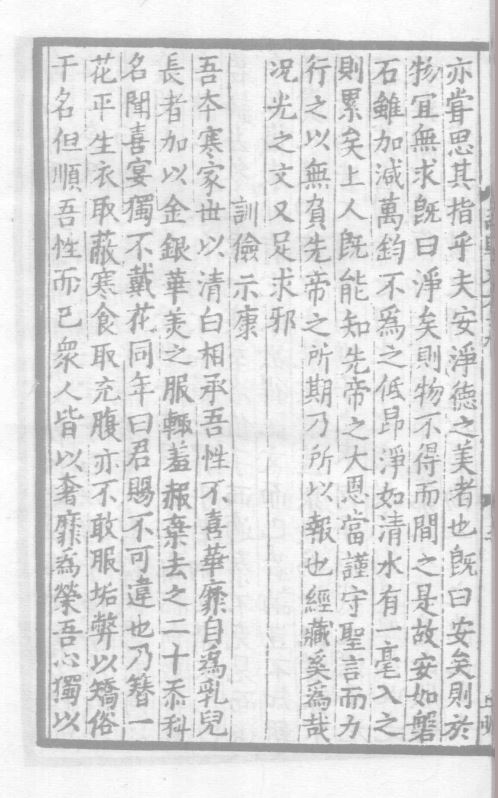 亦嘗思其指乎夫安淨德之美者也既曰安矣則於
物宜無求既曰淨矣則物不得而間之是故安如磐
石雖加減萬鈞不爲之低昂淨如清水有一毫入之
則累矣上人既能知先帝之大恩當謹守聖言而力
行之以無負先帝之所期乃所以報也經藏奚爲哉
况光之文又足求邪
訓儉示康
吾本寒家世以清白相承吾性不喜華靡自爲乳兒
長者加以金銀華羙之服輒羞赧棄去之二十忝科
名聞喜宴獨不戴花同年曰君賜不可違也乃簪一
花平生衣取蔽寒食取充腹亦不敢服垢弊以矯俗
干名但順吾性而已衆人皆以奢靡爲榮吾心獨以